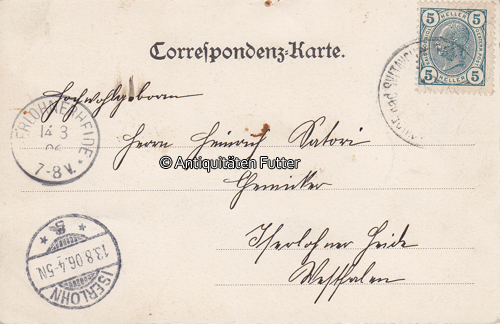 5 HELLER 5
5 HELLER 5
Correspondenz-Karte.
Hochwohlgeboren
Herrn Heinrich Satori
© Antiquitäten Futter
Chemiker
Iserlohner Heide
Westfalen
14 8
06
7-8V.
13.8.06.4-5N
ISERLOHN